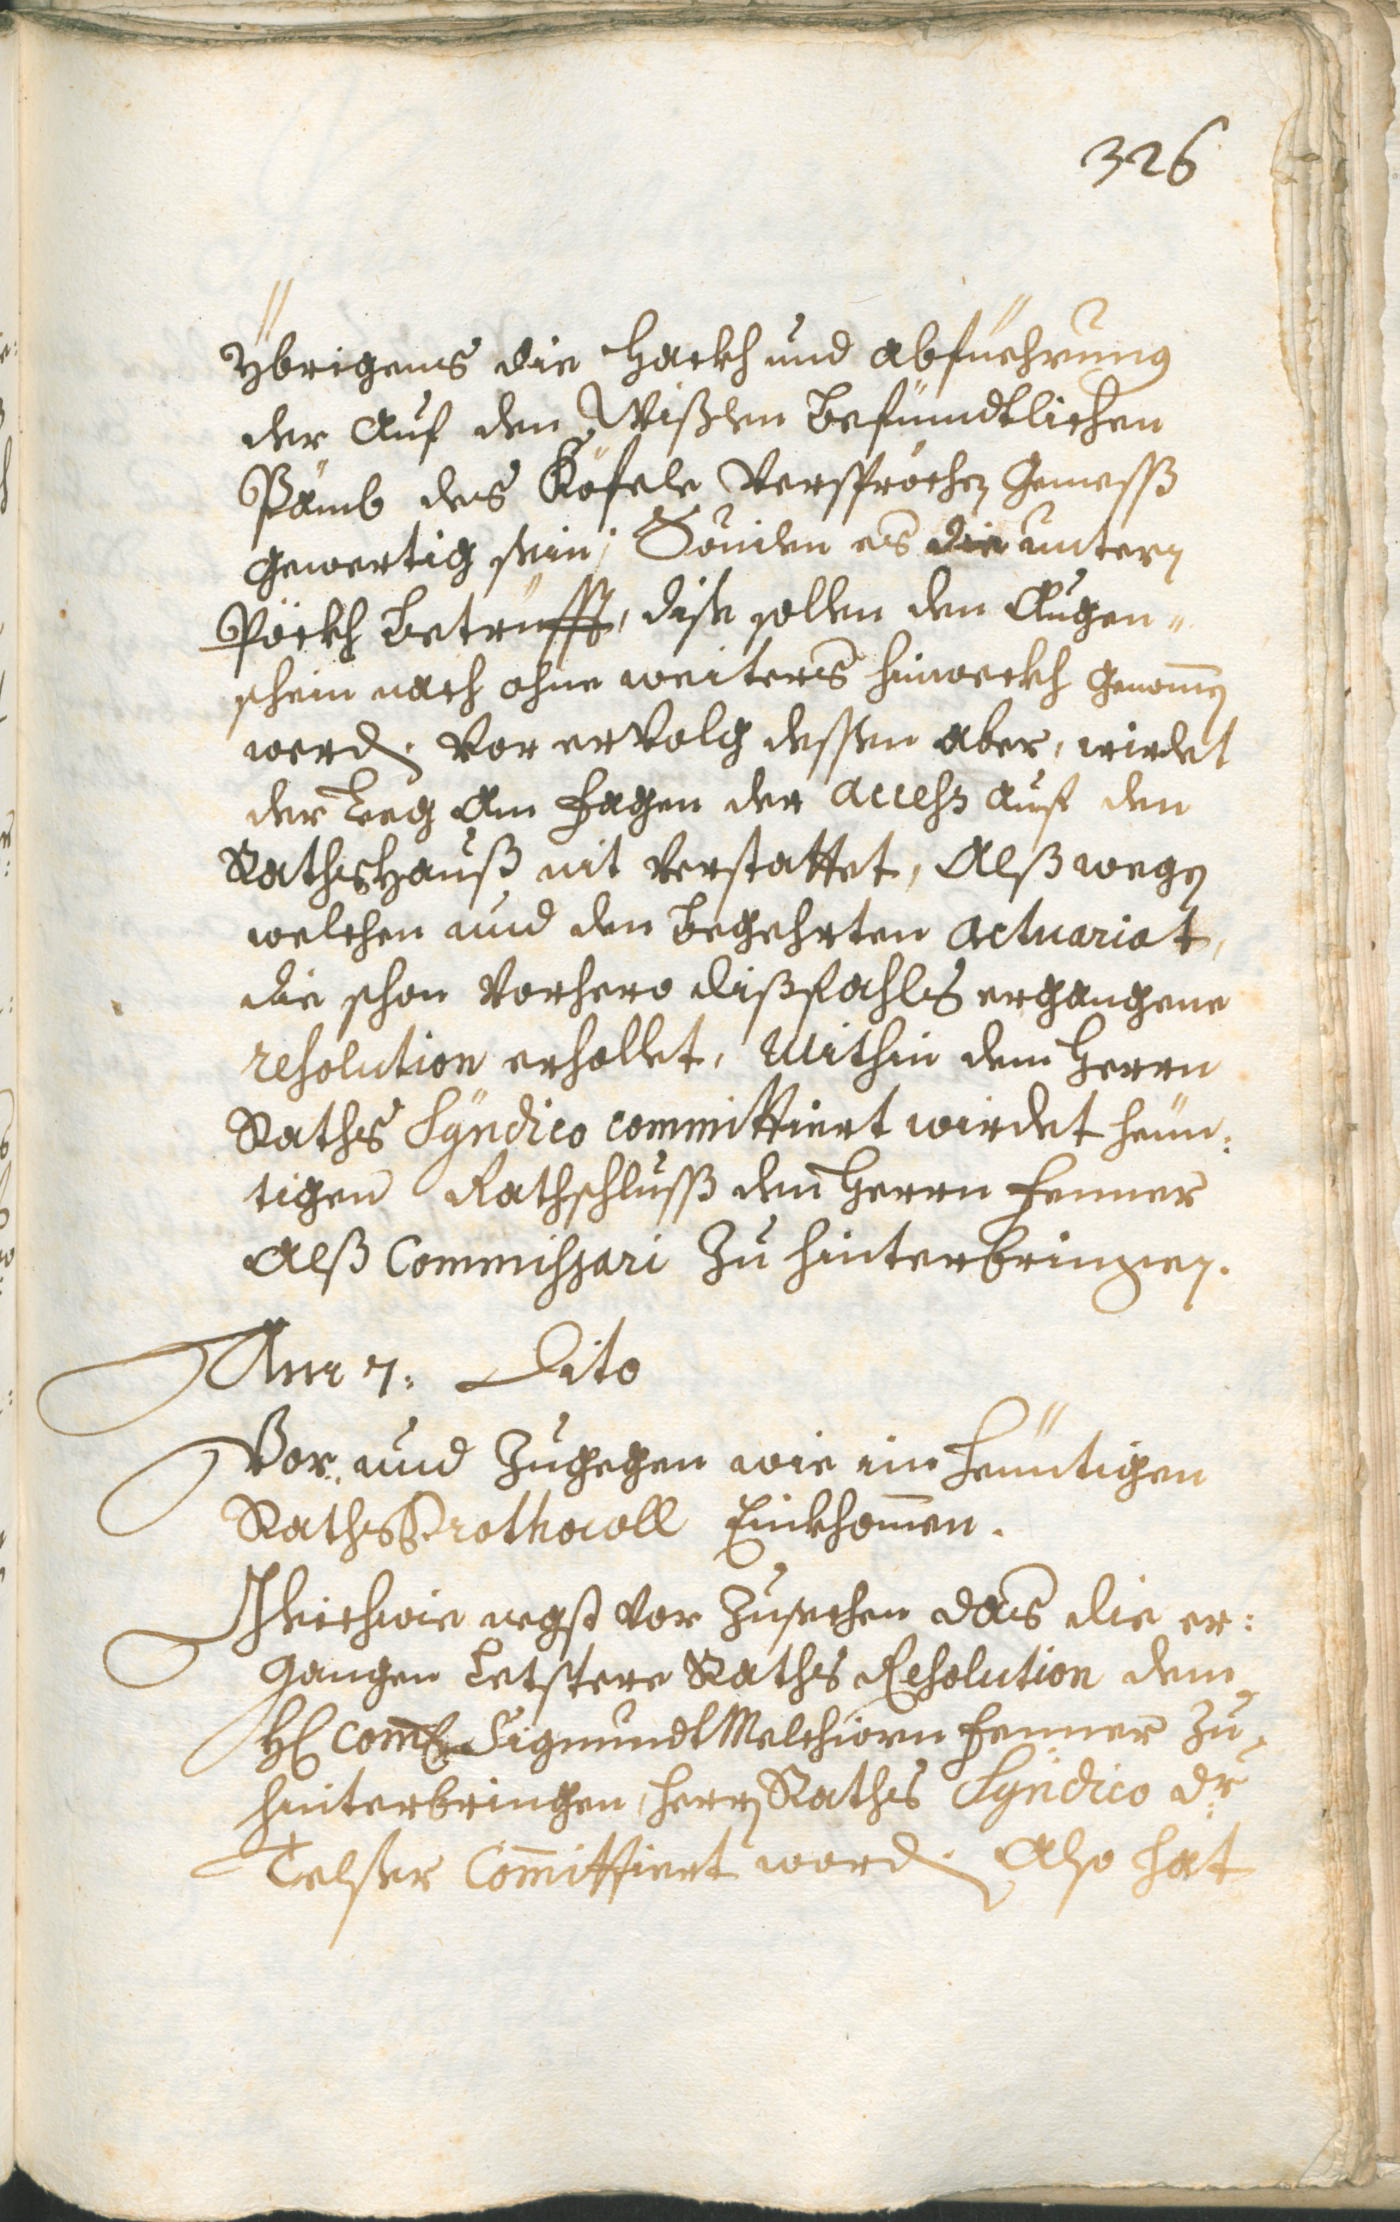 326
Ybrigens die Hackh und abfuehrung
der Auf den Wißen befündtlichen
Pämb des Köfele versprochen gemeß
gewertig sein; Souilen es die untern
Pöckh betrüfft, dise sollen den Augen„
schein nach ohne weiters hinweckh genomen
werd. Vor ervolg dessen aber, wirdet
der Leg am Hagen der access auf den
Rathshauß nit verstattet, Alß wegen
welchen und den begehrten actuariat,
die schon vorhero dißfahls ergangene
resolution erhollet, Mithin dem Herrn
Raths Syndico committiert wirdet heün:
tigen Rathschluß dem Herrn Fenner
Alß Commissari zu hinterbringen.
Am 7: Dito
Vor und zugegen wie im heuntigen
Raths Prothocoll Einkhomen.
Gleichwie negst vor zusechen das die er:
gangen letstere Raths Resolution dem
H Com Sigmundt Melchiorn Fenner zu
hinterbringen, Herrn Raths Syndico Dr
Telser Comittiert word. Also hat